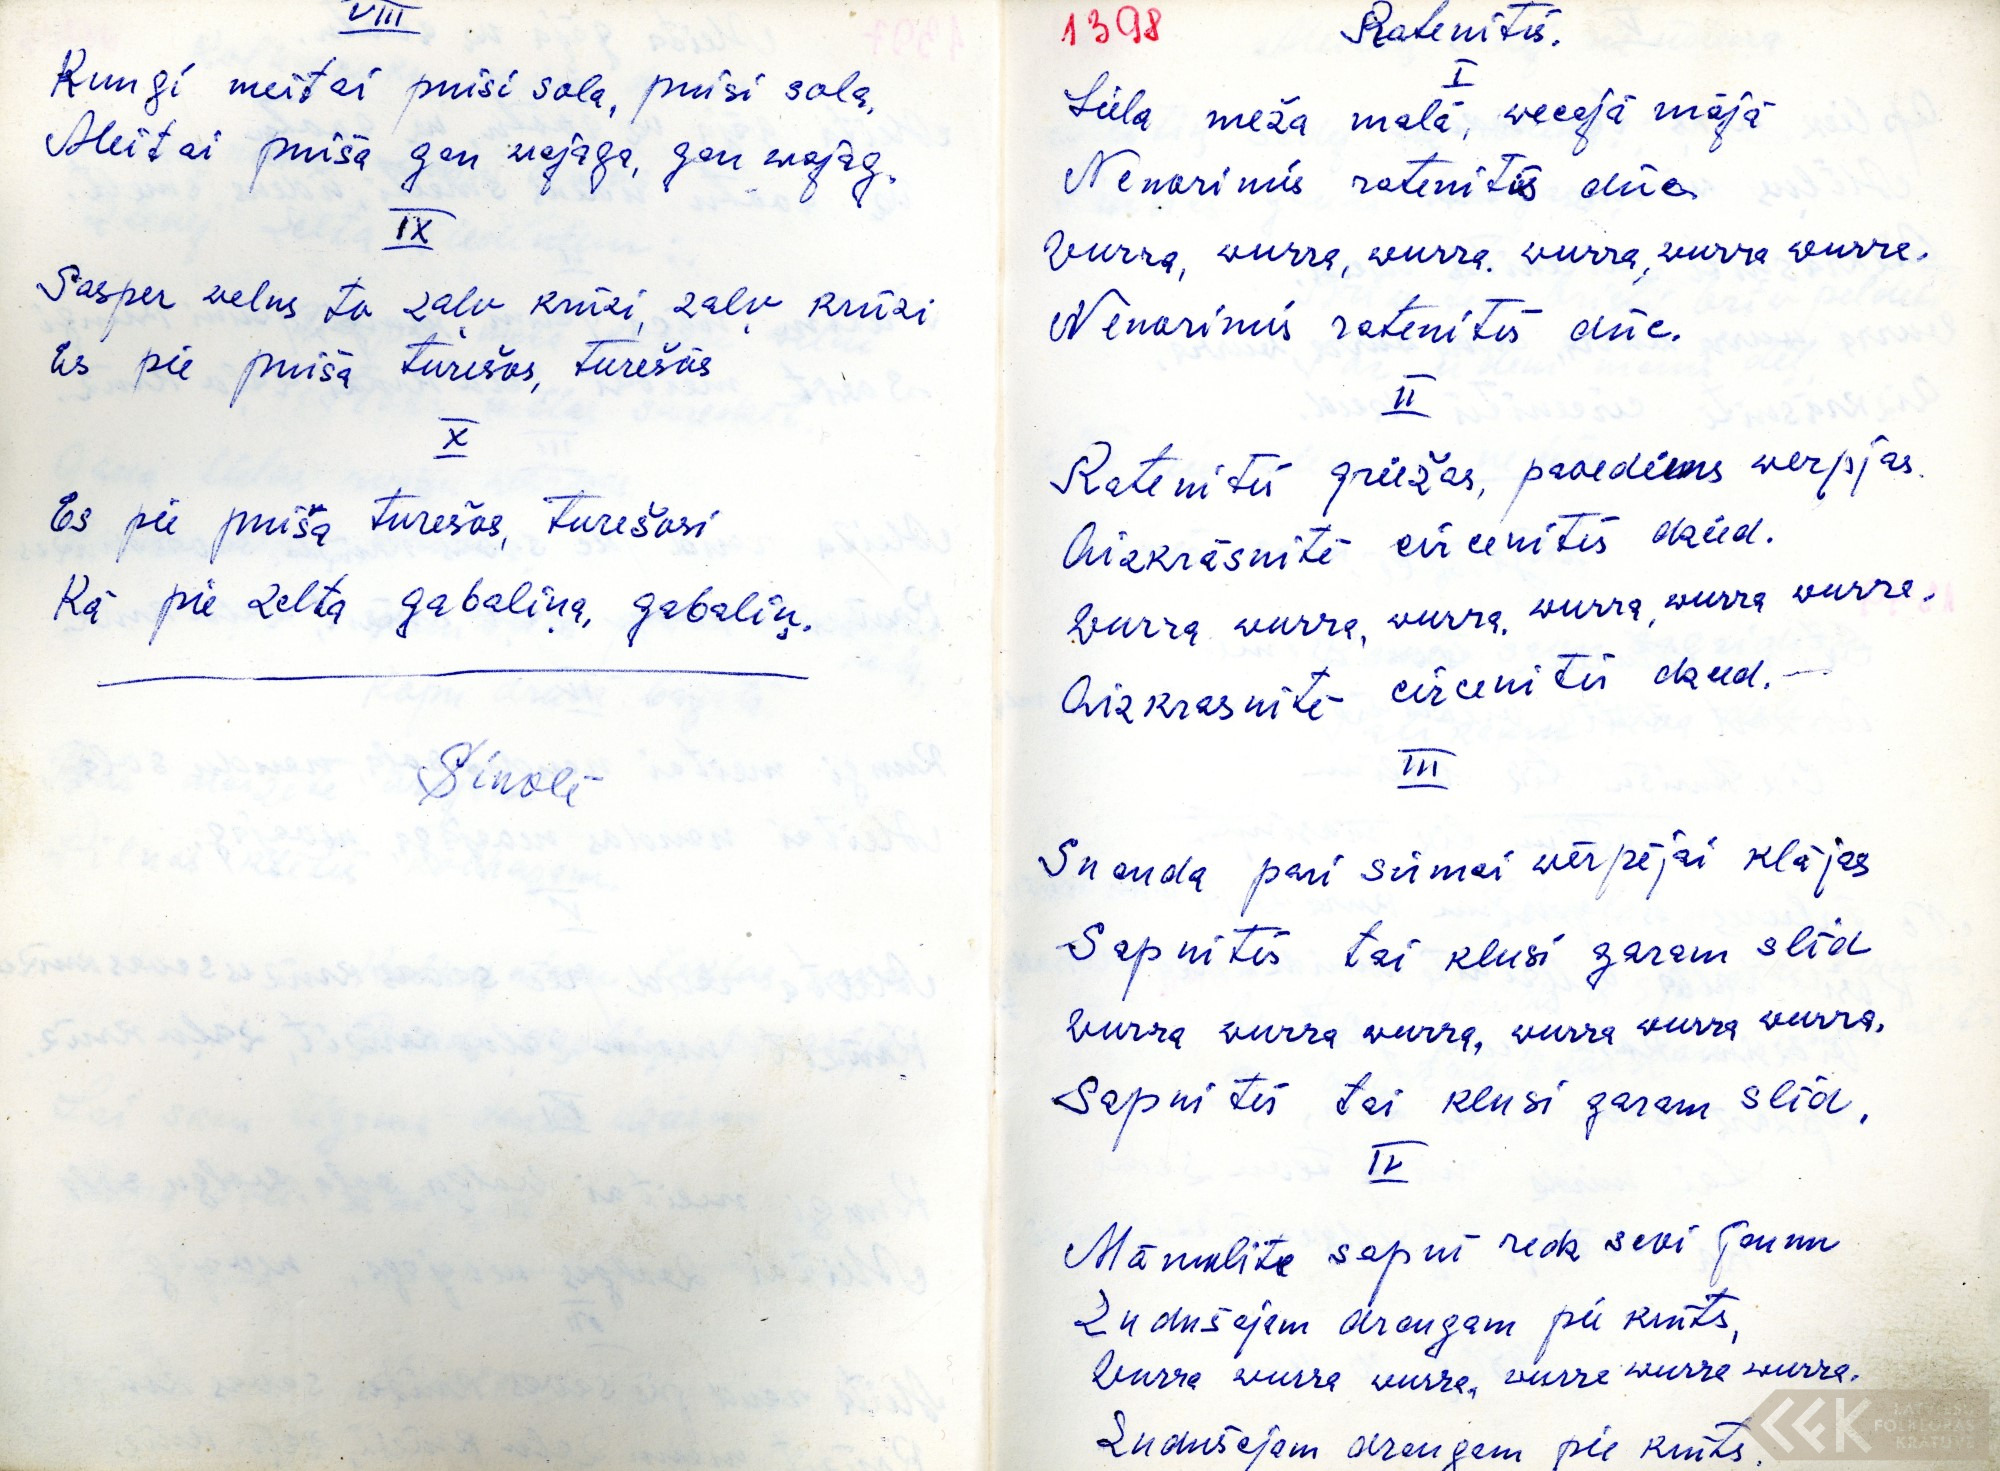 VIII
Kungi meitai puiši sola, puiši sola,
Meitai puiša gan wajaga, gan wajag.
IX
Sasper welns to zaļo krūzi, zaļo krūzi
Es pie puiša turēšos, turēšos
X
Es pie puiša turešos, turešosi
Kā pie zelta gabaliņa, gabaliņ.
Sinolē
1398
Ratenītis.
I
Liela meža malā, wecajā mājā
Nenorimis ratenitis dūc
Wurra, wurra, wurra. wurra, wurra wurra.
Nenorimis ratenitis dūc.
II
Ratenitis griežas, pavediens werpjas.
Aizkrāsnitē circenitis dzied.
Wurra wurra, wurra. wurra, wurra wurra.
Aizkrasnitē circenitis dzied.
III
Snauda pari sirmai wērpējai klājas
Sapnitis tai klusi garam slīd
Wurra wurra wurra, wurra wurra wurra.
Sapnitis tai klusi garam slīd.
IV
Māmulite sapnī redz sevi jaunu
Zudušajam draugam pie krūts,
Wurra wurra wurra, wurra wurra wurra.
Zudušajam draugam pie krūts.
LATVIEŠU
FOLKLORAS
KRĀTUVE